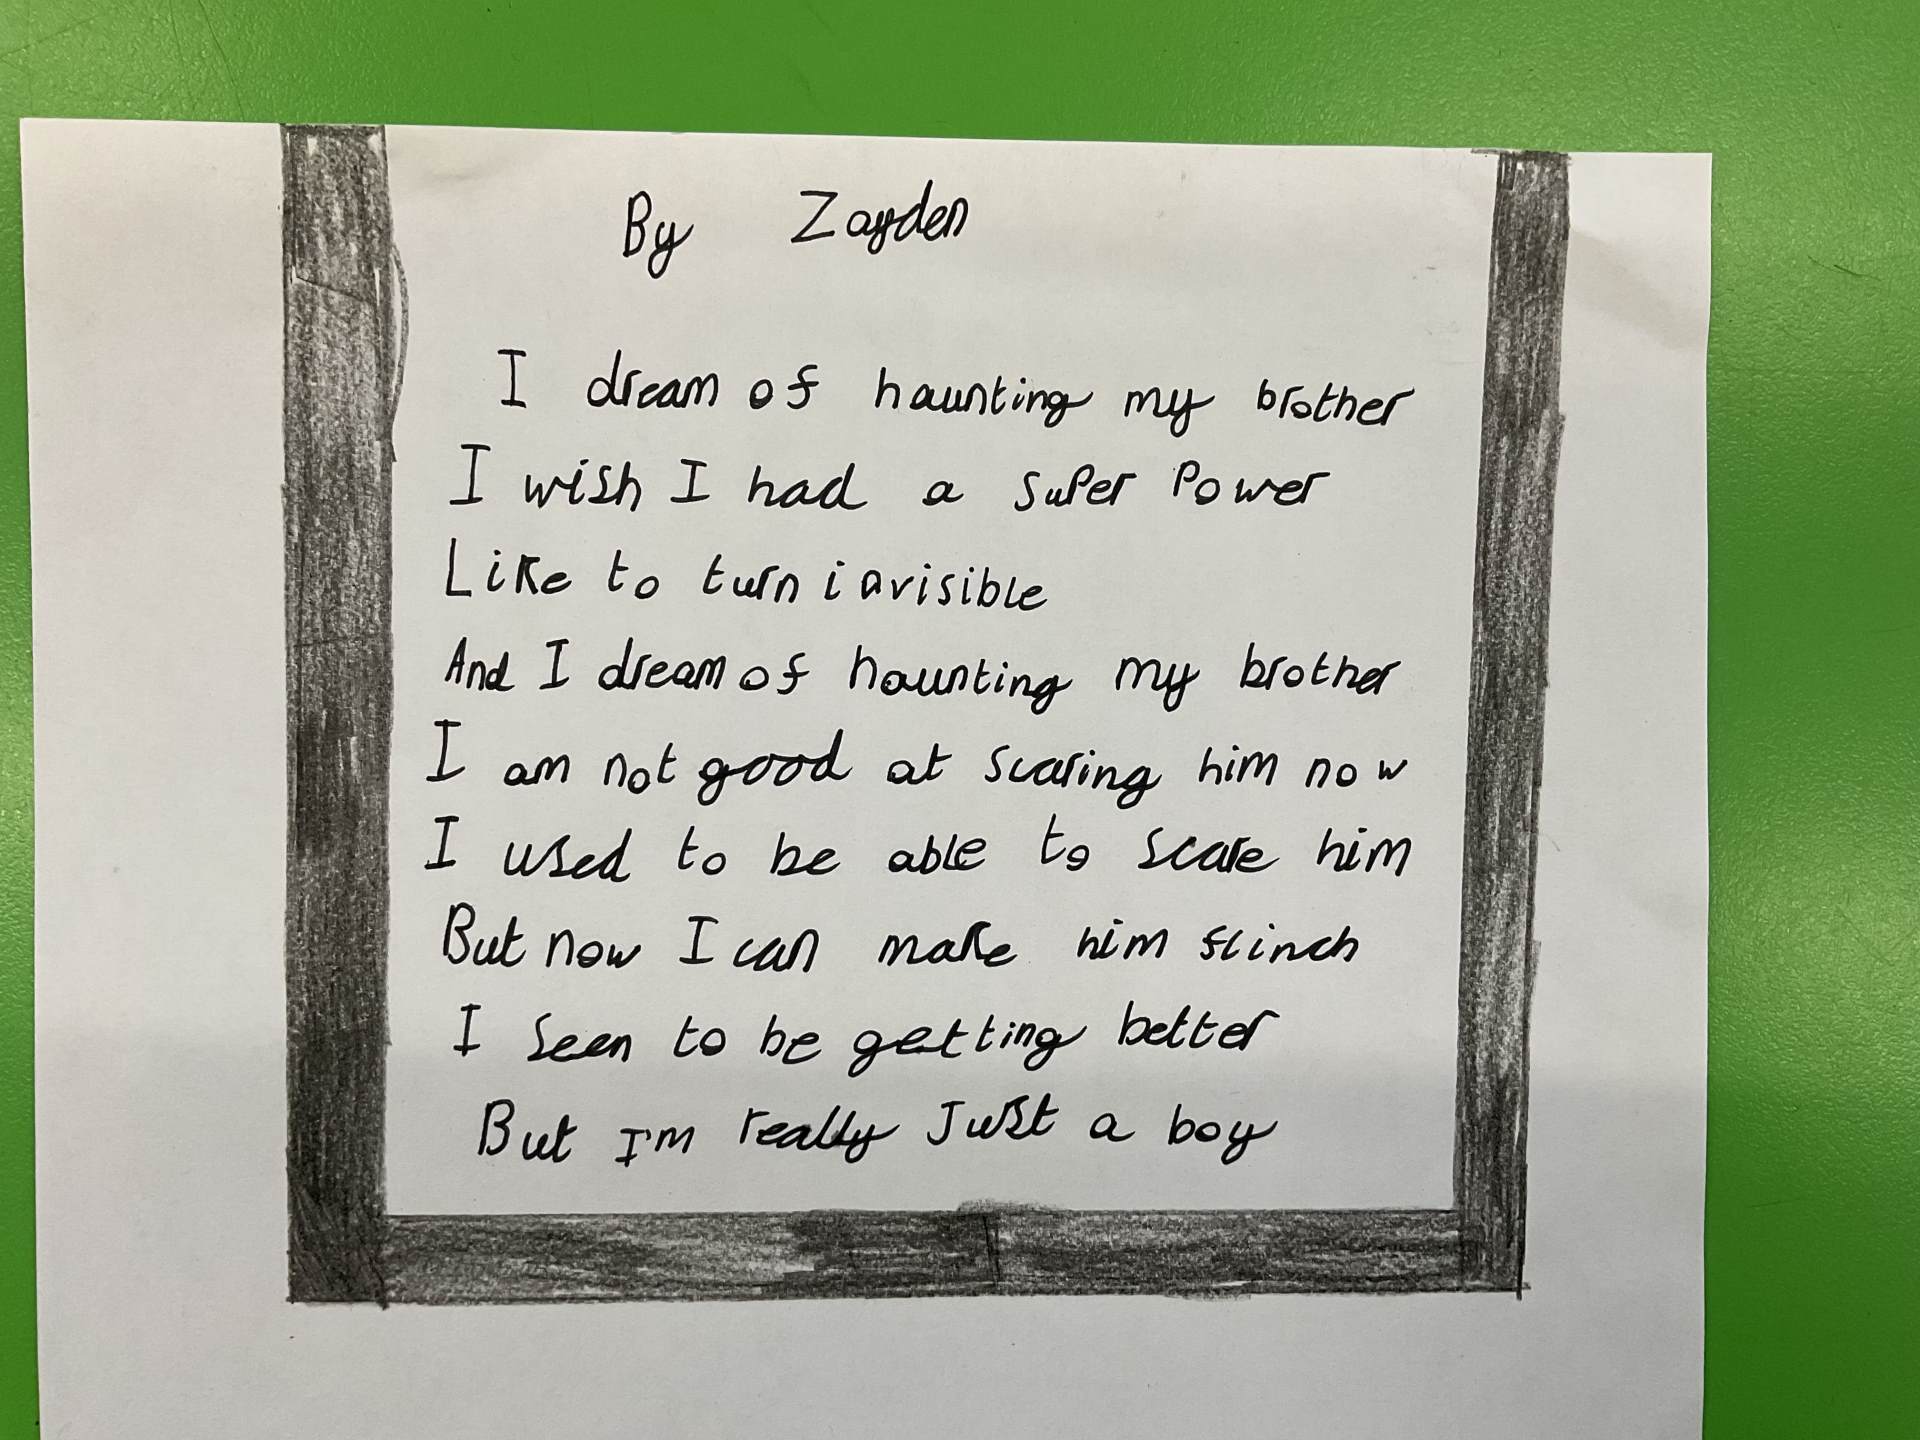 By Zayden
I dream of haunting my brother
I wish I had a super power
Like to turn invisible
And I dream of haunting my brother
I am not good at scaring him now
I used to be able to scare him
But now I can make him flinch
I seen to be getting better
But I'm really Just a boy